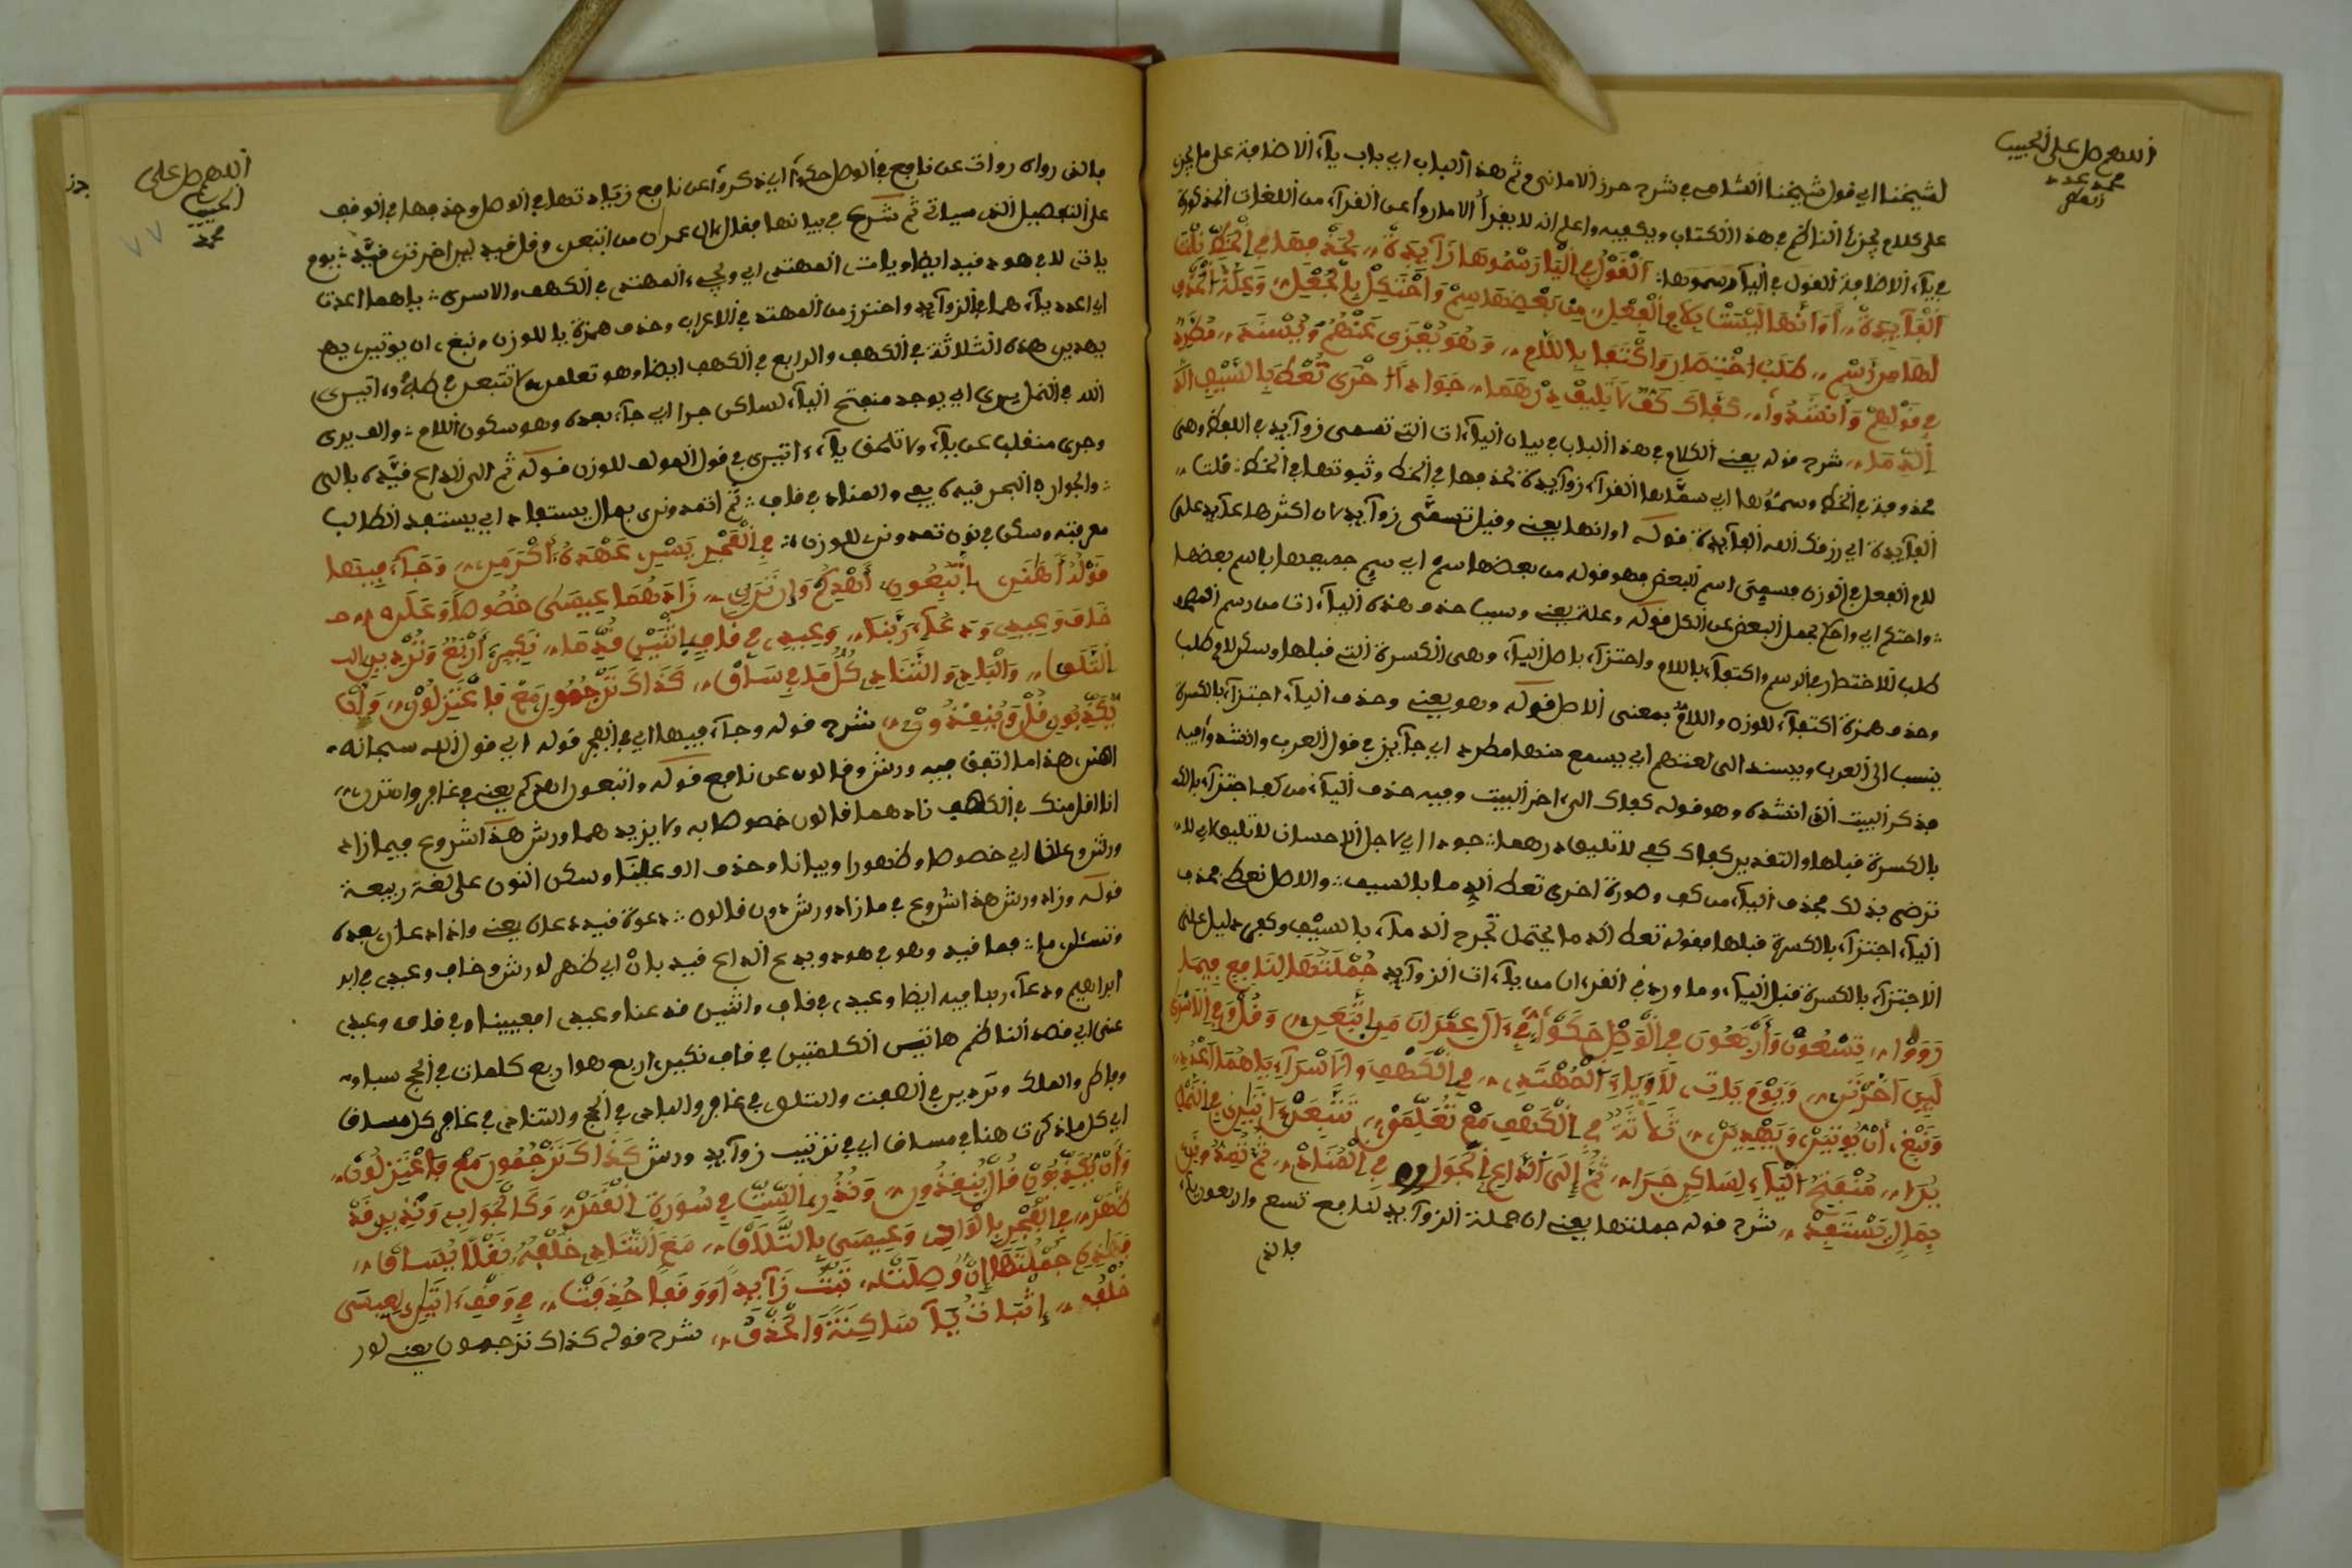 اللهم صل على الحبيب
محمد عدد
لشيخنا اي قول شيخنا الشاطبي في شرح حرز الاماني وثم هذا الباب اي باب ياء الاضافة على ما يجزي
على كلام يجزي الناظم في هذا الكتاب ويكفيه واعلم انه لا يقرأ الا ما رواعن القرآء من اللغات المذكورة
في ياء الاضافة القول في الياء وسموها: القول في اليا وسموها زآيدة، لحذفها في الخط ثلث
الفآيدة، او انها ليست بلام الفعل، من بعضها سم واحتكم بالجعل، وعلة الحذف
لها من رسم، طلب اختصار واكتفا باللام، وهو يعزى عنهم ويسند، مطرد
في قولهم وانشدوا، كفاك كف لا تليق درهما، جودا واخرى تعط بالسيف الد
الدما، شرح قوله يعني الكلام في هذا الباب في بيان الياءات التي تسمى زوآيد في اللفظ وهي
محذوفة في الخط وسموها اي سمّاها القرآء زوآيدة لحذفها في الخط وثبوتها في الخط: قلت،
الفآيدة اي رزقك الله الفآيدة قوله او انها يعني وقيل تسمّى زوآيد لان اكثرها عآيد على
لام الفعل في الوزن فسمي اسم البعض فهو قوله من بعضها سم اي سم جميعها باسم بعضها
: واحتكم اي واحكم بجعل البعض عن الكل قوله وعلة يعني وسبب حذف هذه الياءات من رسم المصحف
طلب للاختصار في الرسم واكتفآء باللام واجتزآء باصل اليآء وهي الكسرة التي قبلها وسكن لام طلب
وحذف همزة اكتفآء للوزن واللام بمعنى الاصل قوله وهو يعني وحذف اليآء اجتزآء بالكسرة
ينسب الى العرب ويسند الى لغتهم اي يسمع منها مطرد اي جآيز في قول العرب وانشدوا فيه
فذكر البيت الذي انشده وهو قوله كفاك الى اخر البيت وفيه حذف اليآء من كف اجتزآء بالك
بالكسرة قبلها والتقدير كفاك كفي لا تليق درهما: جودا اي لاجل الاحسان لا تليق اي لا
ترضى بذلك بحذف اليآء من كف وصورة اخرى تعط الدما بالسيف: والاصل تعطي محذف
اليآء اجتزآء بالكسرة قبلها فقوله تعط الدما يحتمل تجرح الدمآء بالسيف وكفى دليل على
الاجتزآء بالكسرة قبل اليآء وما ورد في القرءان من يآءات الزوآيد جملتها لنافع فيما
رووا، تسعون واربعون في الوصل حكوا، في ءال عمران من اتبعن، وقل وفي الاسرى
لين اخرتن، ويوم يات لا وياء المهتد، في الكهف والاسرآء باهما اعدد،
ونبغ ان يوتين ويهدين، ثلاثة في الكهف مع تعلمن، تتبعن ءاتين في النمل
يرا، منفتح اليآء لساكن جرا، ثم الى الداع الجوار في المناد، ثم تمدونن
بمال يستفد، شرح قوله جملتها يعني ان جملة الزوآيد لنافع تسع واربعون ياء
فالذ
اللهم صل على
الحبيب
محمد
فالذي رواه رواة عن نافع في الوصل حكوا اي ذكروا عن نافع زيادتها في الوصل وحذفها في الوقف
على التفصيل الذي سياتي ثم شرع في بيانها فقال ءال عمران من اتبعن وقل فيد لين اخرتن قيّد: يوم
ياتي لا في هود قيد ايضا وياء المهتدي اي ويجيء المهتدي في الكهف والاسرى: باهما اعددن
اي اعدد يآءهما في الزوآيد واحترز من المهتد في الاعراب وحذف همزة يا للوزن ونبغ ان يوتين يه
يهدين هذه الثلاثة في الكهف والرابع في الكهف ايضا وهو تعلمن لا تتبعن في طه وءاتين ي
الله في النمل يرى اي يوجد منفتح اليآء لساكن جرا اي جآء بعده وهو سكون اللام: والف يرى
وجرى منقلب عن يآء ولا تلحق يآء ءاتين ي في قول المولف للوزن قوله ثم الى الداع قيّده بالى
: والجوار ه البحر قيده بفي والمناد في قاف: ثم اتمدونن بمال يستفاد اي يستفد الطالب
معرفته وسكن في نون تمدونن للوزن: في الفجر يسر عهده اكرمن، وجآء فيها
قوله اهانن اتبعون اهدكم وان ترن، زادهما عيسى خصوصا وعلن
خاف وعيد ودعآء ربنا، وعيد في قاف اثنين قد عنا، نكير اربع وتردين الب
التلاق، والباد والتناد كلما في ساق، كذاك ترجمون مع فاعتزلون، وان
يكذبون قل وينقذون، شرح قوله وجآء فيها اي في الفجر قوله اي قول الله سبحانه
اهنن هذا ما اتفق فيه ورش وقالون عن نافع قوله واتبعون اهدكم يعني في غافر وان ترن،
انا اقل منك في الكهف زادهما قالون خصوصا به ولا يزيدهما ورش هذا شروع فيما زاد
ورش وعلنا اي خصوصا وظهورا وبيانا وحذف الف علينا وسكن النون على لغة ربيعة
قوله وزاد ورش هذا شروع في ما زاد ورش دون قالون: دعوة قيد دعان يعني واذا دعان بعده
وتسئلن ما: فما قيد وهو في هود ويدع الداع قيد بان اي ظهر لورش وخاف وعيد في ابر
ابراهيم ودعآء ربنا فيه ايضا وعيد في قاف واثنين قد عنا وعيد افعيينا وفي قاف وعيد
عنى اي قصد الناظم هاتين الكلمتين في قاف نكير اربع هو اربع كلمات في الحج سبا و
وفاطر والملك وتردين في الصفت والتلاق في غافر والباد في الحج والتناد في غافر كل مساق
اي كل ما ذكرت هنا في مساق اي في ترتيب زوآيد ورش كذاك ترجمون مع فاعتزلون،
وان يكذبون قل ينقذون، ونذر الست في سورة القمر، وكالجواب ونذير قد
ظهر، في الفجر بالواد وعيسى بالتلاق، مع التناد خلفه نقلا يساق،
فهذه جملتها ان وصلت، تثبت زآيدا ووقفا حذفت، في وقف ءاتين لعيسى
خلفه، اثبات يآ ساكنة والحذف، شرح قوله كذاك ترجمون يعني لور